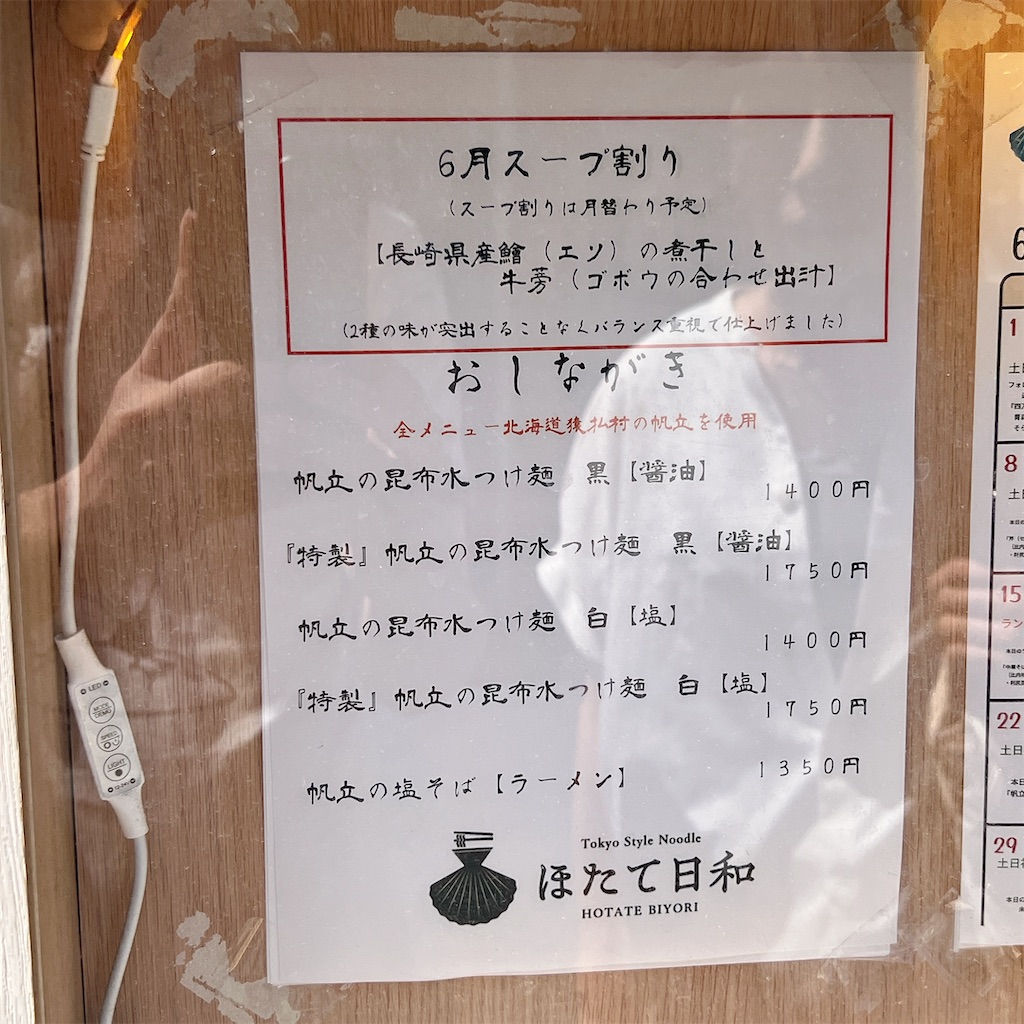 6月スープ割り
(スープ割りは月替わり予定)
【長崎県産鱠（エソ）の煮干しと
牛蒡（ゴボウの合わせ出汁】
(2種の味が突出することなくバランス重視で仕上げました)
おしながき
全メニュー北海道猿払村の帆立を使用
帆立の昆布水つけ麺　黒【醤油】
1400円
『特製』帆立の昆布水つけ麺　黒【醤油】
1750円
帆立の昆布水つけ麺　白【塩】
1400円
『特製』帆立の昆布水つけ麺　白【塩】
1750円
帆立の塩そば【ラーメン】
1350円
Tokyo Style Noodle
ほたて日和
HOTATE BIYORI
LED
MODE
DEMO
SPEED
LIGHT
6
1
土日
8
土日
15
ラン
22
土日
29
土日祝